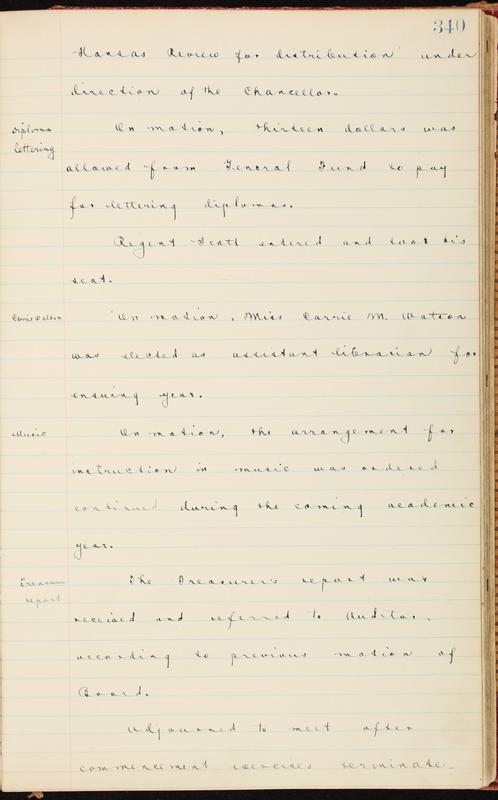 340
Kansas Review for distribution under
direction of the Chancellor.
diploma
lettering
On motion, thirteen dollars was
allowed from General Fund to pay
for lettering diplomas.
Regent Scott entered and took his
seat.
Carrie Watson
On motion, Miss Carrie M. Watson
was elected as assistant librarian for
ensuing year.
Music
On motion, the arrangement for
instruction in music was ordered
continued during the coming academic
year.
Treasurer
report
The Treasurer's report was
received and referred to Auditor,
according to previous motion of
Board.
Adjourned to meet after
commencement exercises terminate.